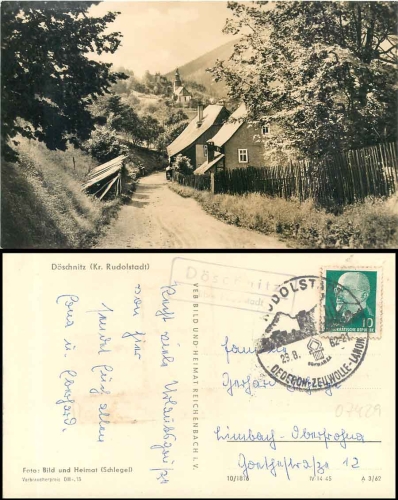 Döschnitz (Kr. Rudolstadt)
Recht viele Urlaubsgrüße
von hier
sendet Euch allen
Lona u. Eberhard.
Foto: Bild und Heimat (Schlegel)
Verbraucherpreis DM -,15
VEB BILD UND HEIMAT REICHENBACH I. V.
Döschnitz
RUDOLSTADT
DEDERON-ZELLWOLLE-
23.8.62-21
10
Familie
Gerhard
Limbach-Oberfrohna
Goethestraße 12
07429
10/1818
IV 14 45
A 3/62